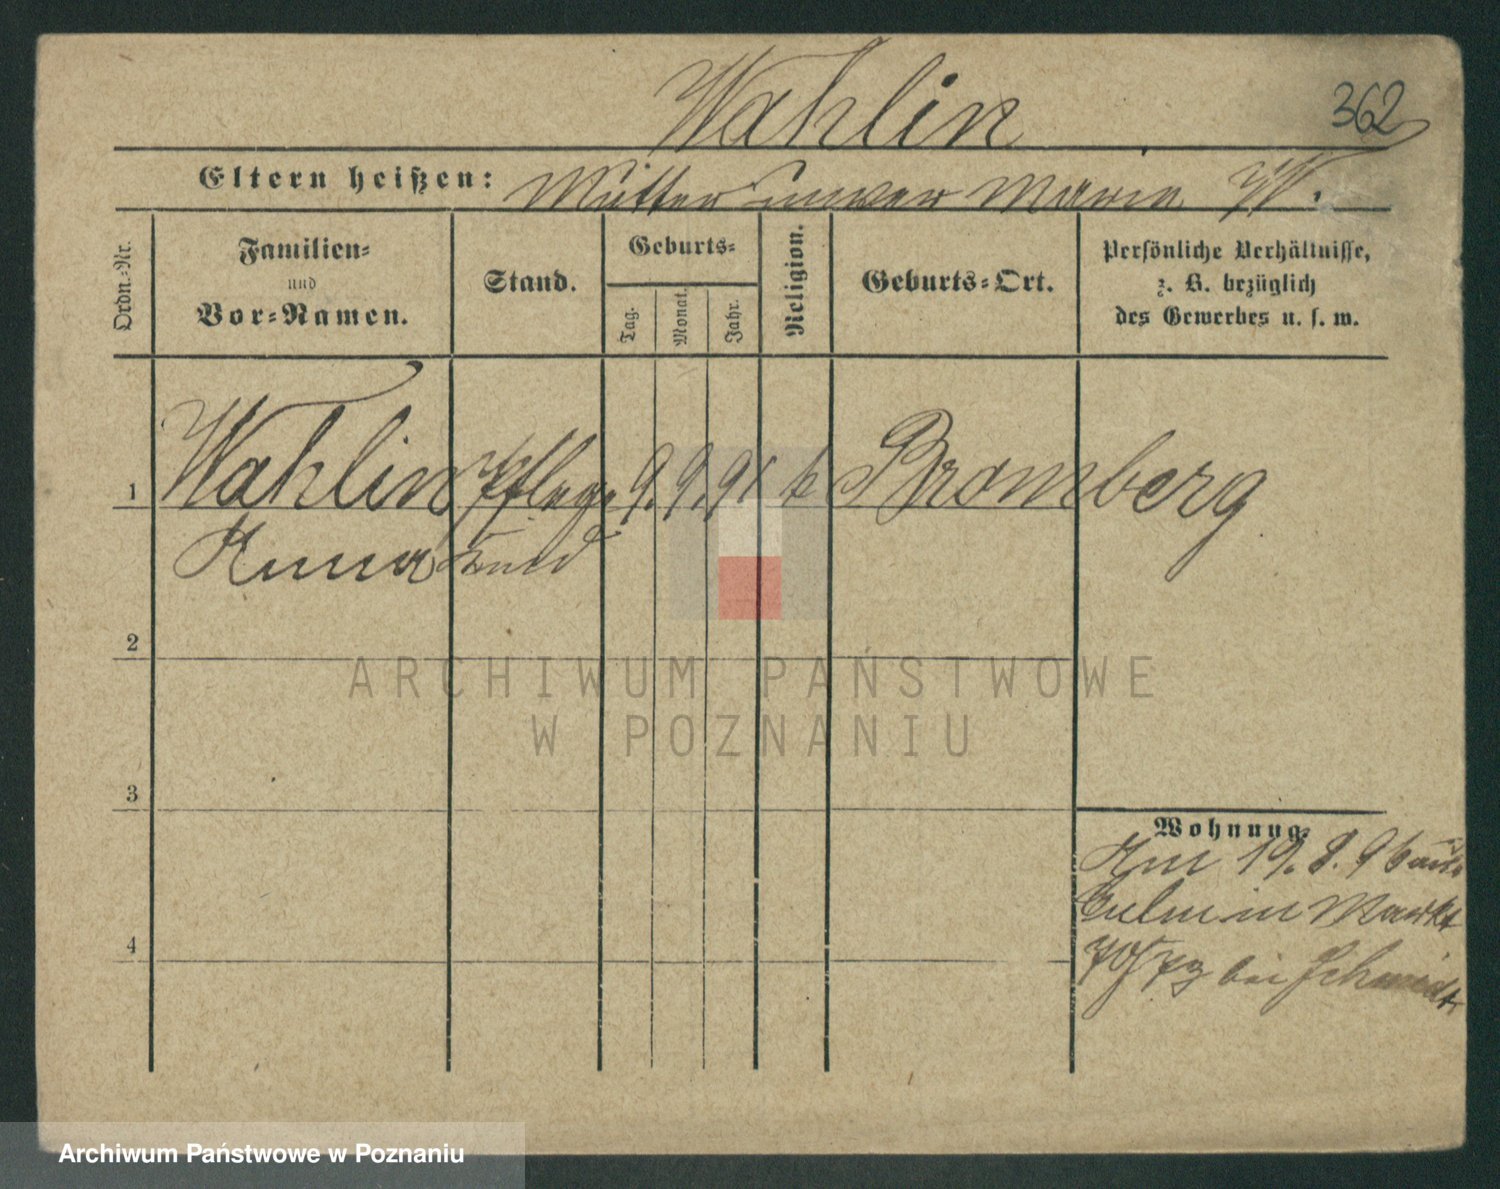 Wahlin
362
Eltern heißen: Mutter unver Maria W.
Ordn.-Nr.
Familien-
und
Vor-Namen.
Stand.
Geburts-
Tag.
Monat.
Jahr.
Religion.
Geburts-Ort.
Persönliche Verhältnisse,
z. B. bezüglich
des Gewerbes u. s. w.
1 Wahlin Pflege 9. 9. 91 k Bromberg
Anna kind
2
ARCHIWUM PAŃSTWOWE
W POZNANIU
3
Wohnung.
Am 19. 8. 96 aus
Culm in Markt
bei Schmidt
4
Archiwum Państwowe w Poznaniu